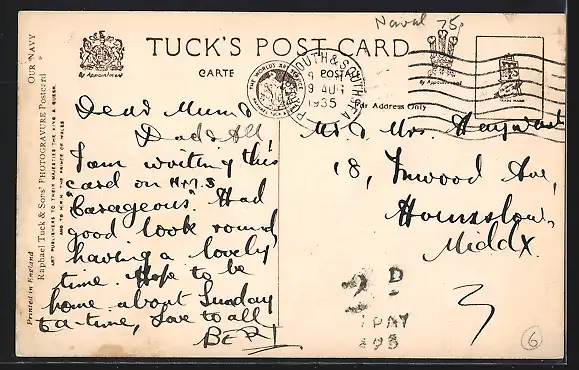 Naval 75p
TUCK'S POST CARD
By Appointment
CARTE POSTALE
By Appointment
For Address Only
PORTSMOUTH & SOUTHSEA
9 AUG
1935
TRADE MARK
OUR NAVY
Raphael Tuck & Sons' PHOTOGRAVURE Postcard
ART PUBLISHERS TO THEIR MAJESTIES THE KING & QUEEN
AND TO H.R.H. THE PRINCE OF WALES
Printed in England
Dear Mum &
Dad & All
I am writing this
card on H.M.S
"Corageous". Had
good look round
having a lovely
time. Hope to be
home about Sunday
tea-time, Love to all
BERT
Mr. & Mrs. Hayward
18, Inwood Ave,
Hounslow,
Middx.
D
1 DAY
3
6